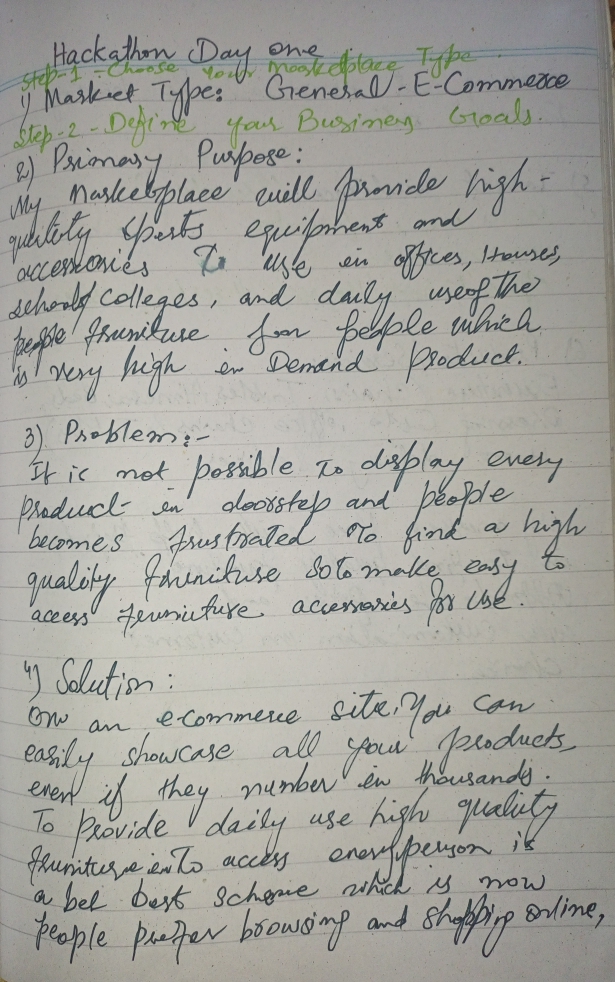 Hackathon Day one
Step-1 - Choose your Marketplace Type
1) Market Type: General-E-Commerce
Step-2 - Define your Business Goals.
2) Primary Purpose:
My Marketplace will provide high-
quality sports equipment and
accessories To use in offices, Houses,
schools/colleges, and daily use of the
people fruniture for people which
is very high in Demand Product.
3) Problem:-
It is not possible to display every
Product in doorstep and people
becomes frustrated to find a high
quality furniture so to make easy to
access furniture accessories for use.
4) Solution:
One an e-commerce site, You can
easily showcase all your products,
even if they number in thousands.
To Provide daily use high quality
fruniture in To access every person is
a best scheme which is now
people prefer browsing and shopping online,